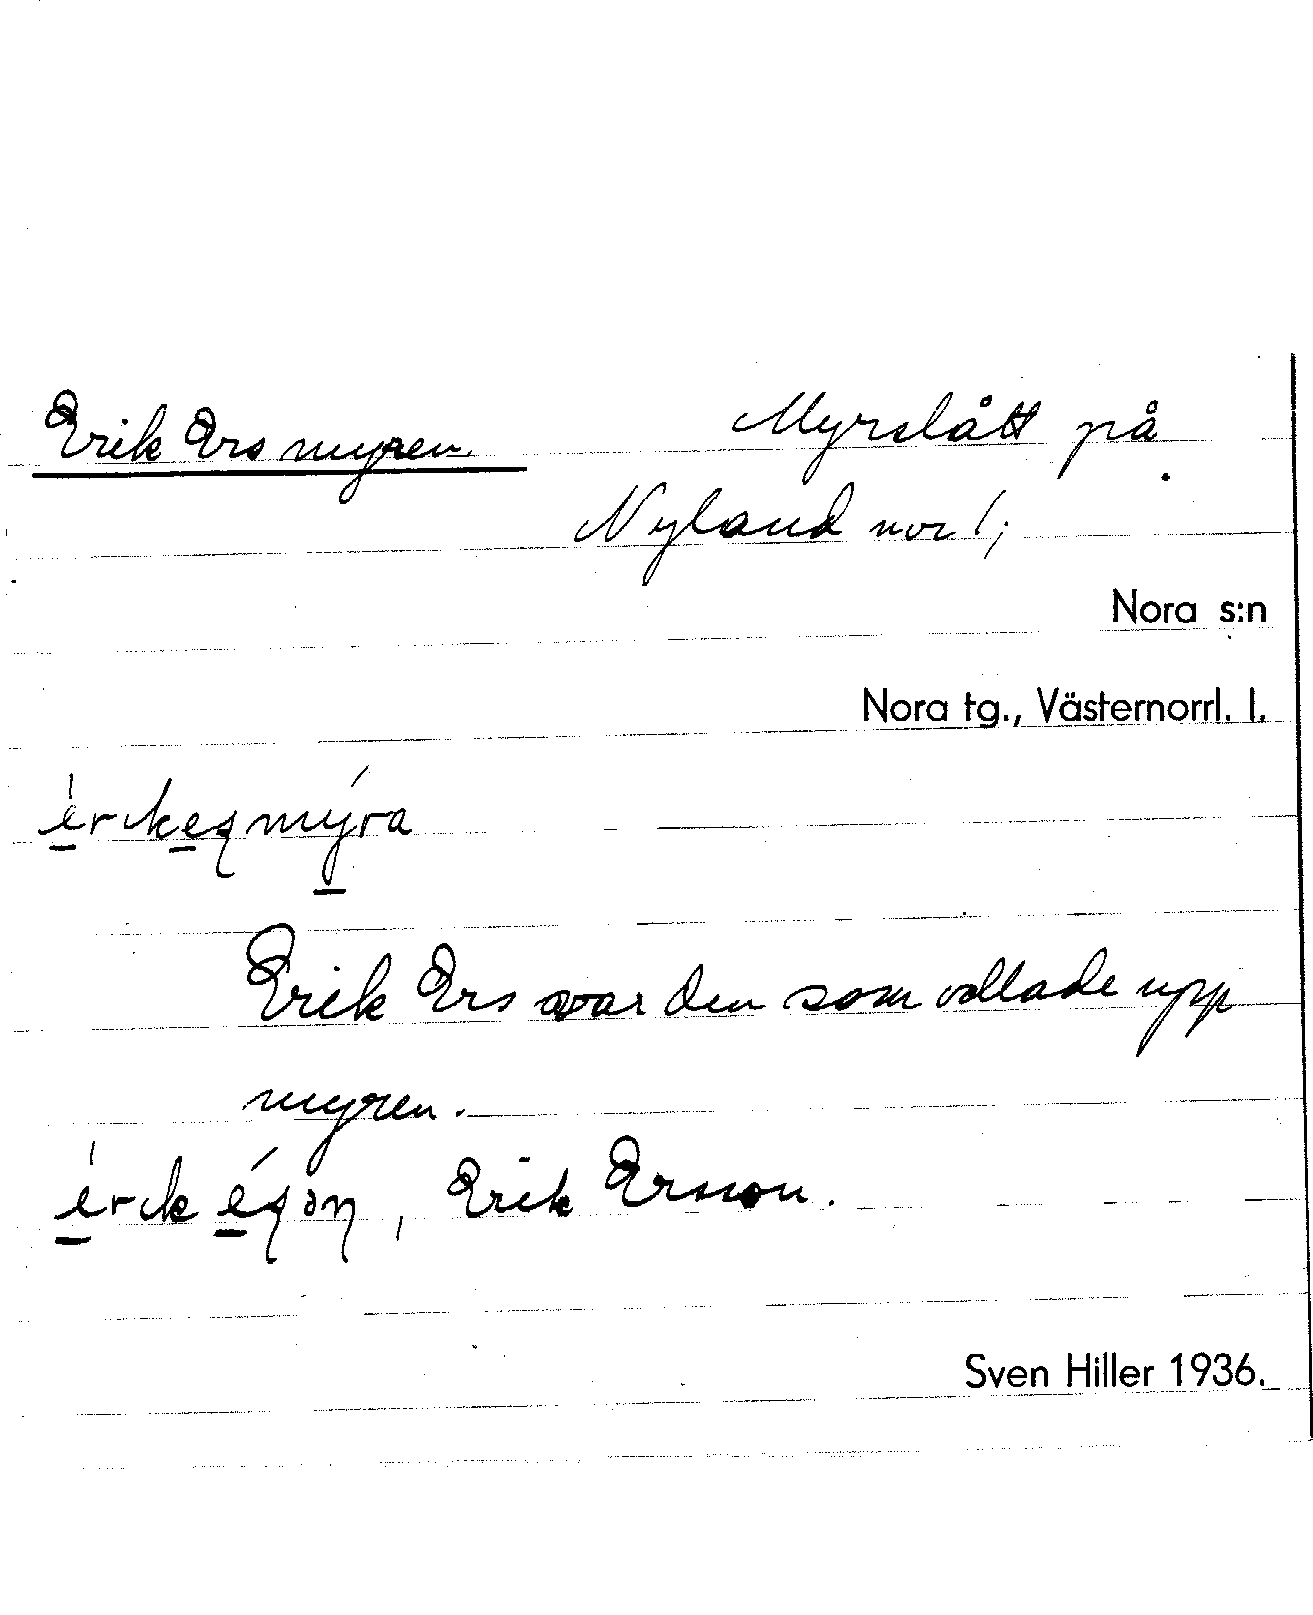 Erik Ers myren. Myrslått på
Nyland nor l;
Nora s:n
Nora tg., Västernorrl. l.
Erik Ers var den som vållade upp
myren.
, Erik Ersson.
Sven Hiller 1936.